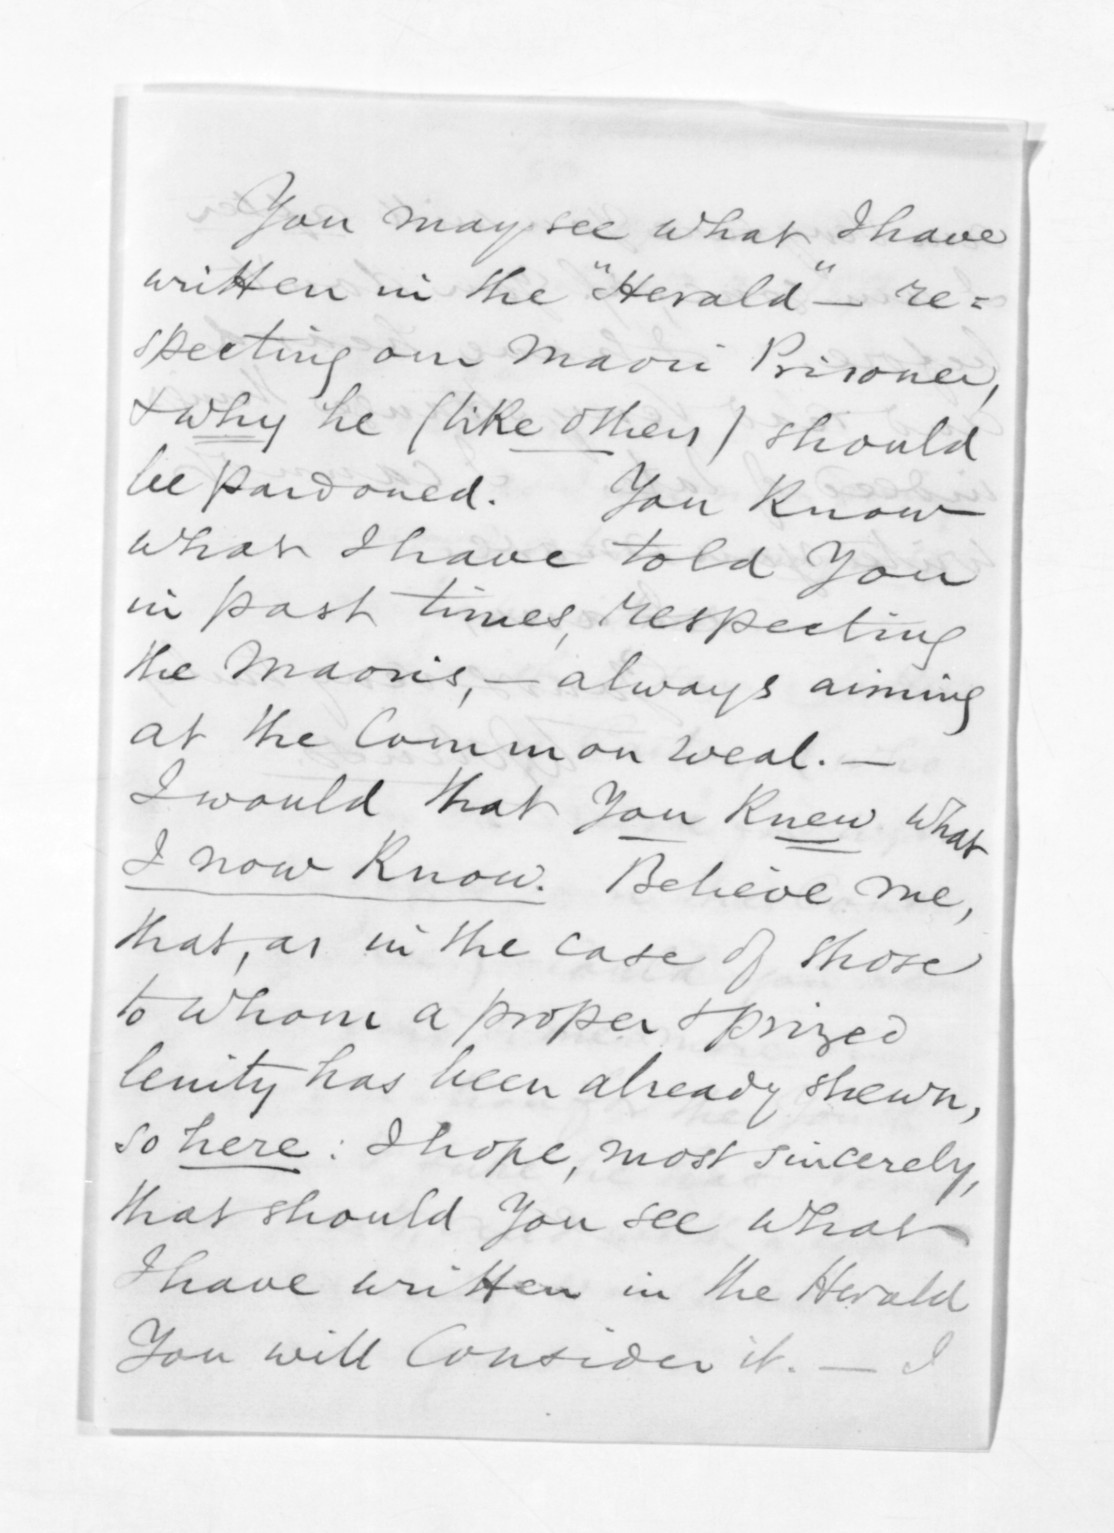 You may see what I have
written in the "Herald" — re=
specting our Maori Prisoner,
& why he (like others) should
be pardoned. You know
what I have told You
in past times, respecting
the Maoris, — always aiming
at the Common weal. —
I would that You Knew what
I now Know. Believe me,
that, as in the case of those
to whom a proper & prized
lenity has been already shewn,
so here: I hope, most sincerely,
that should You see what
I have written in the Herald
You will Consider it. — I